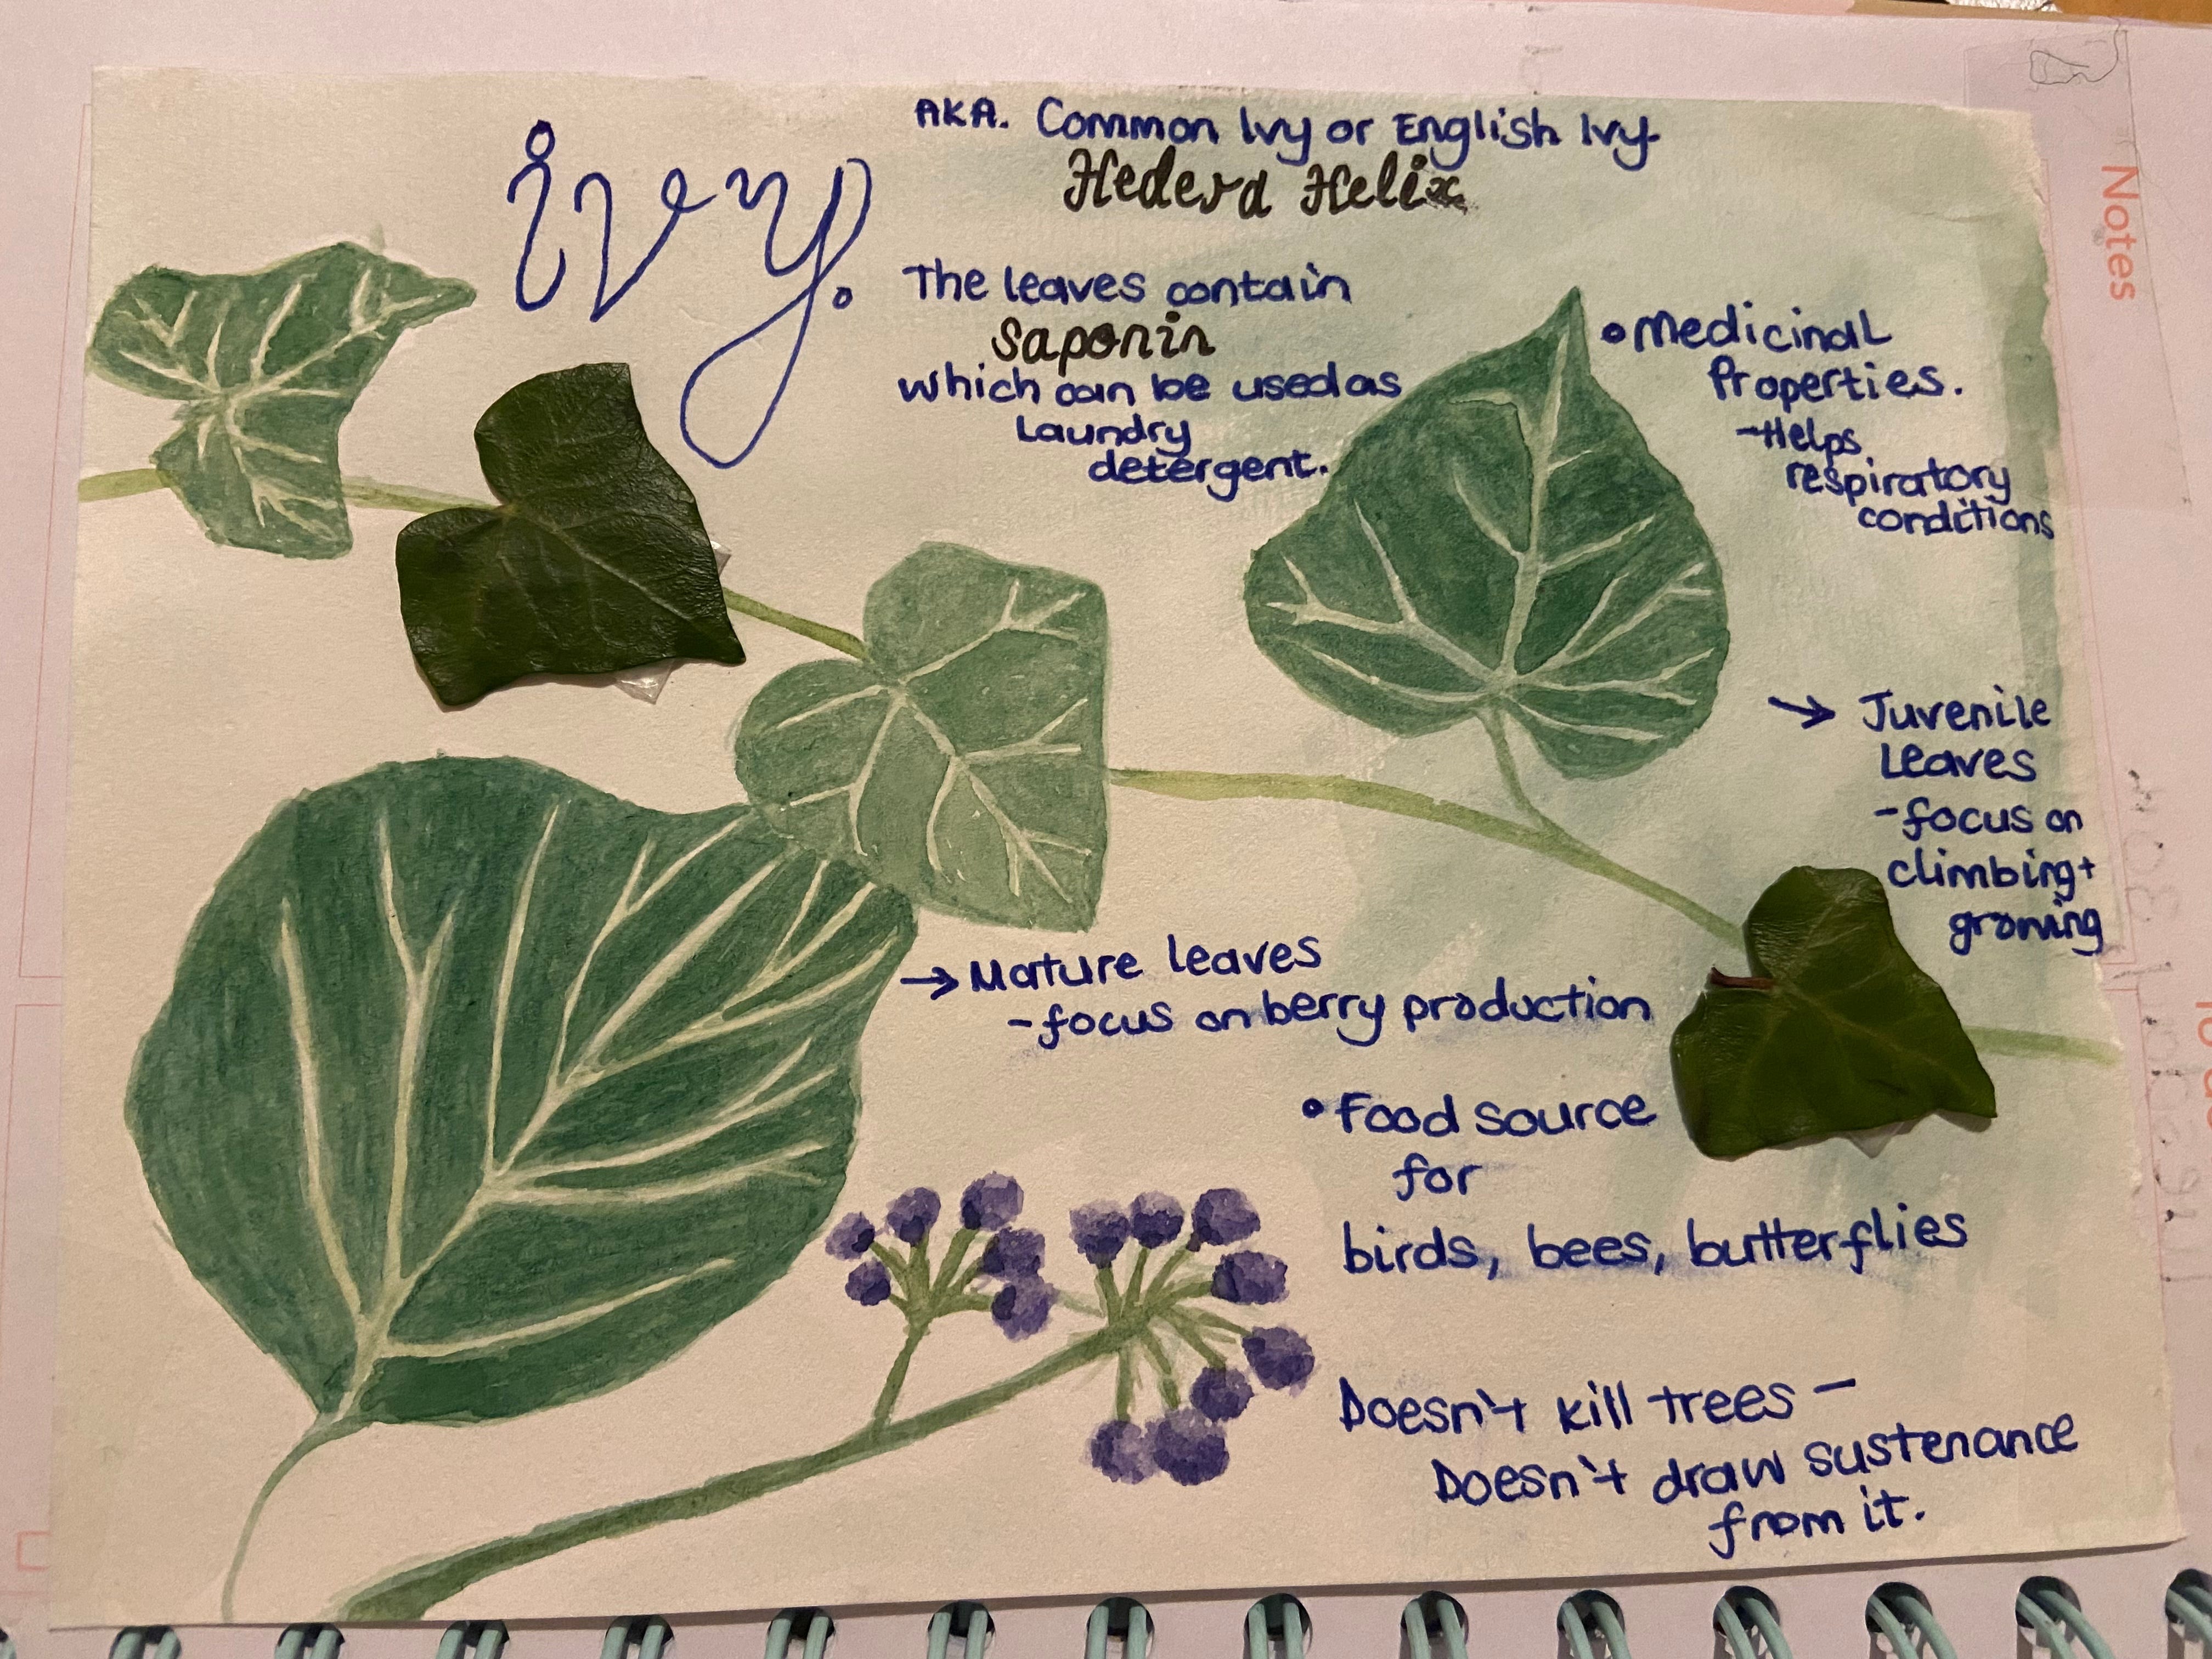 ivy.
AKA. Common Ivy or English Ivy
Hedera Helix
The leaves contain
saponin
which can be used as
Laundry
detergent.
• Medicinal
Properties.
- Helps
respiratory
conditions
→ Juvenile
Leaves
- focus on
climbing +
growing
→ Mature leaves
- focus on berry production
• Food source
for
birds, bees, butterflies
Doesn't kill trees -
Doesn't draw sustenance
from it.
Notes